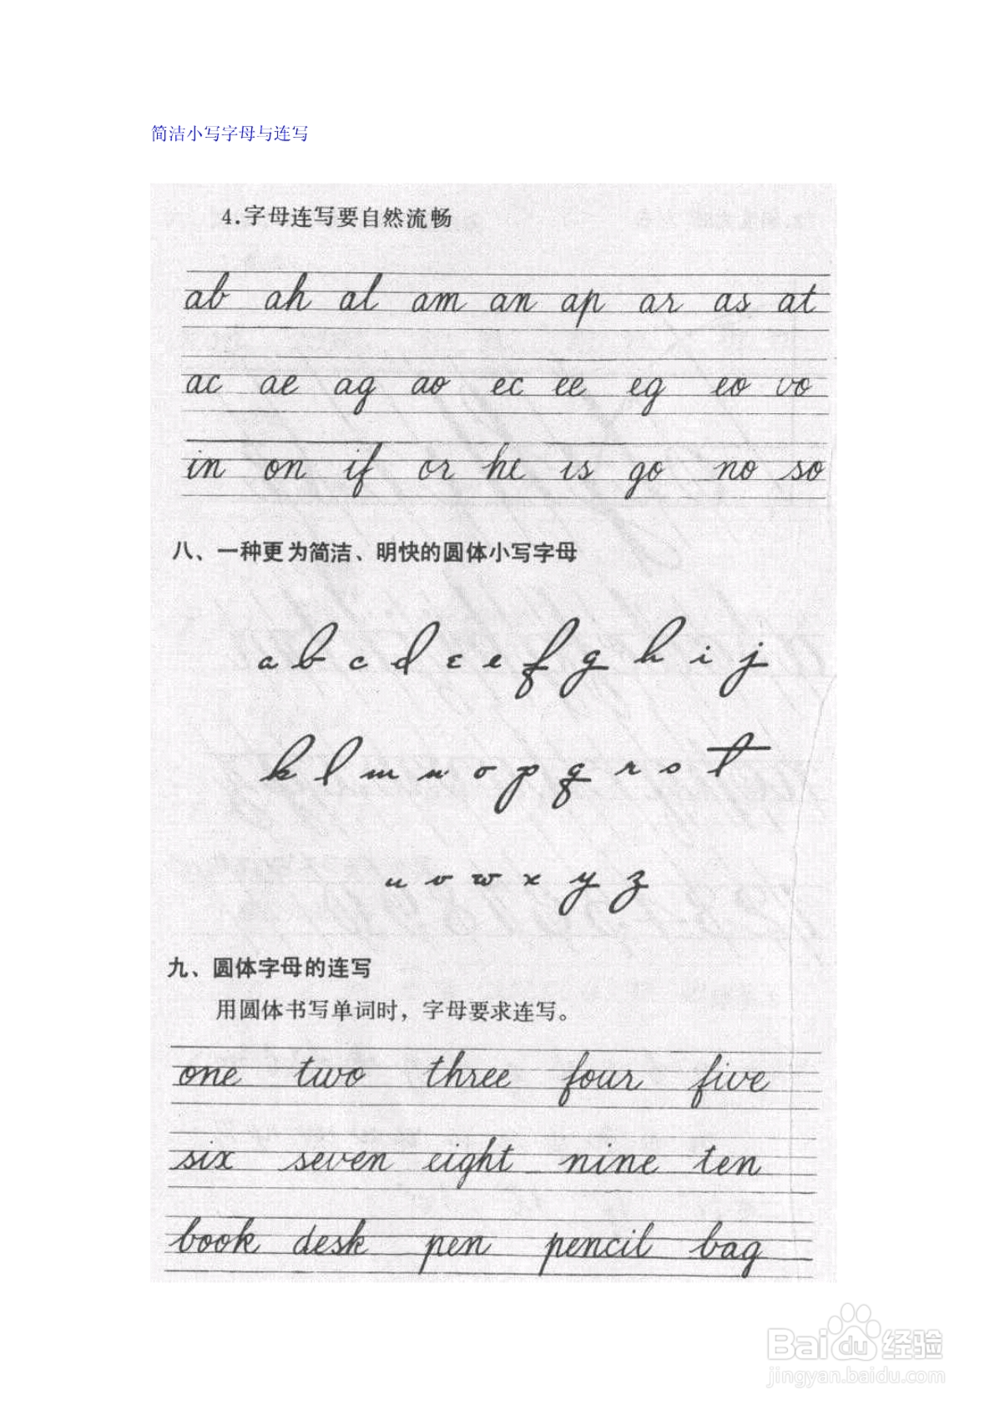 简洁小写字母与连写
4.字母连写要自然流畅
ab ah al am an ap ar as at
ac ae ag ao ec ee eg eo vo
in on if or he is go no so
八、一种更为简洁、明快的圆体小写字母
a b c d ε e f g h i j
k l m n o p q r s t
u v w x y z
九、圆体字母的连写
用圆体书写单词时，字母要求连写。
one two three four five
six seven eight nine ten
book desk pen pencil bag
Baidu经验
jingyan.baidu.com